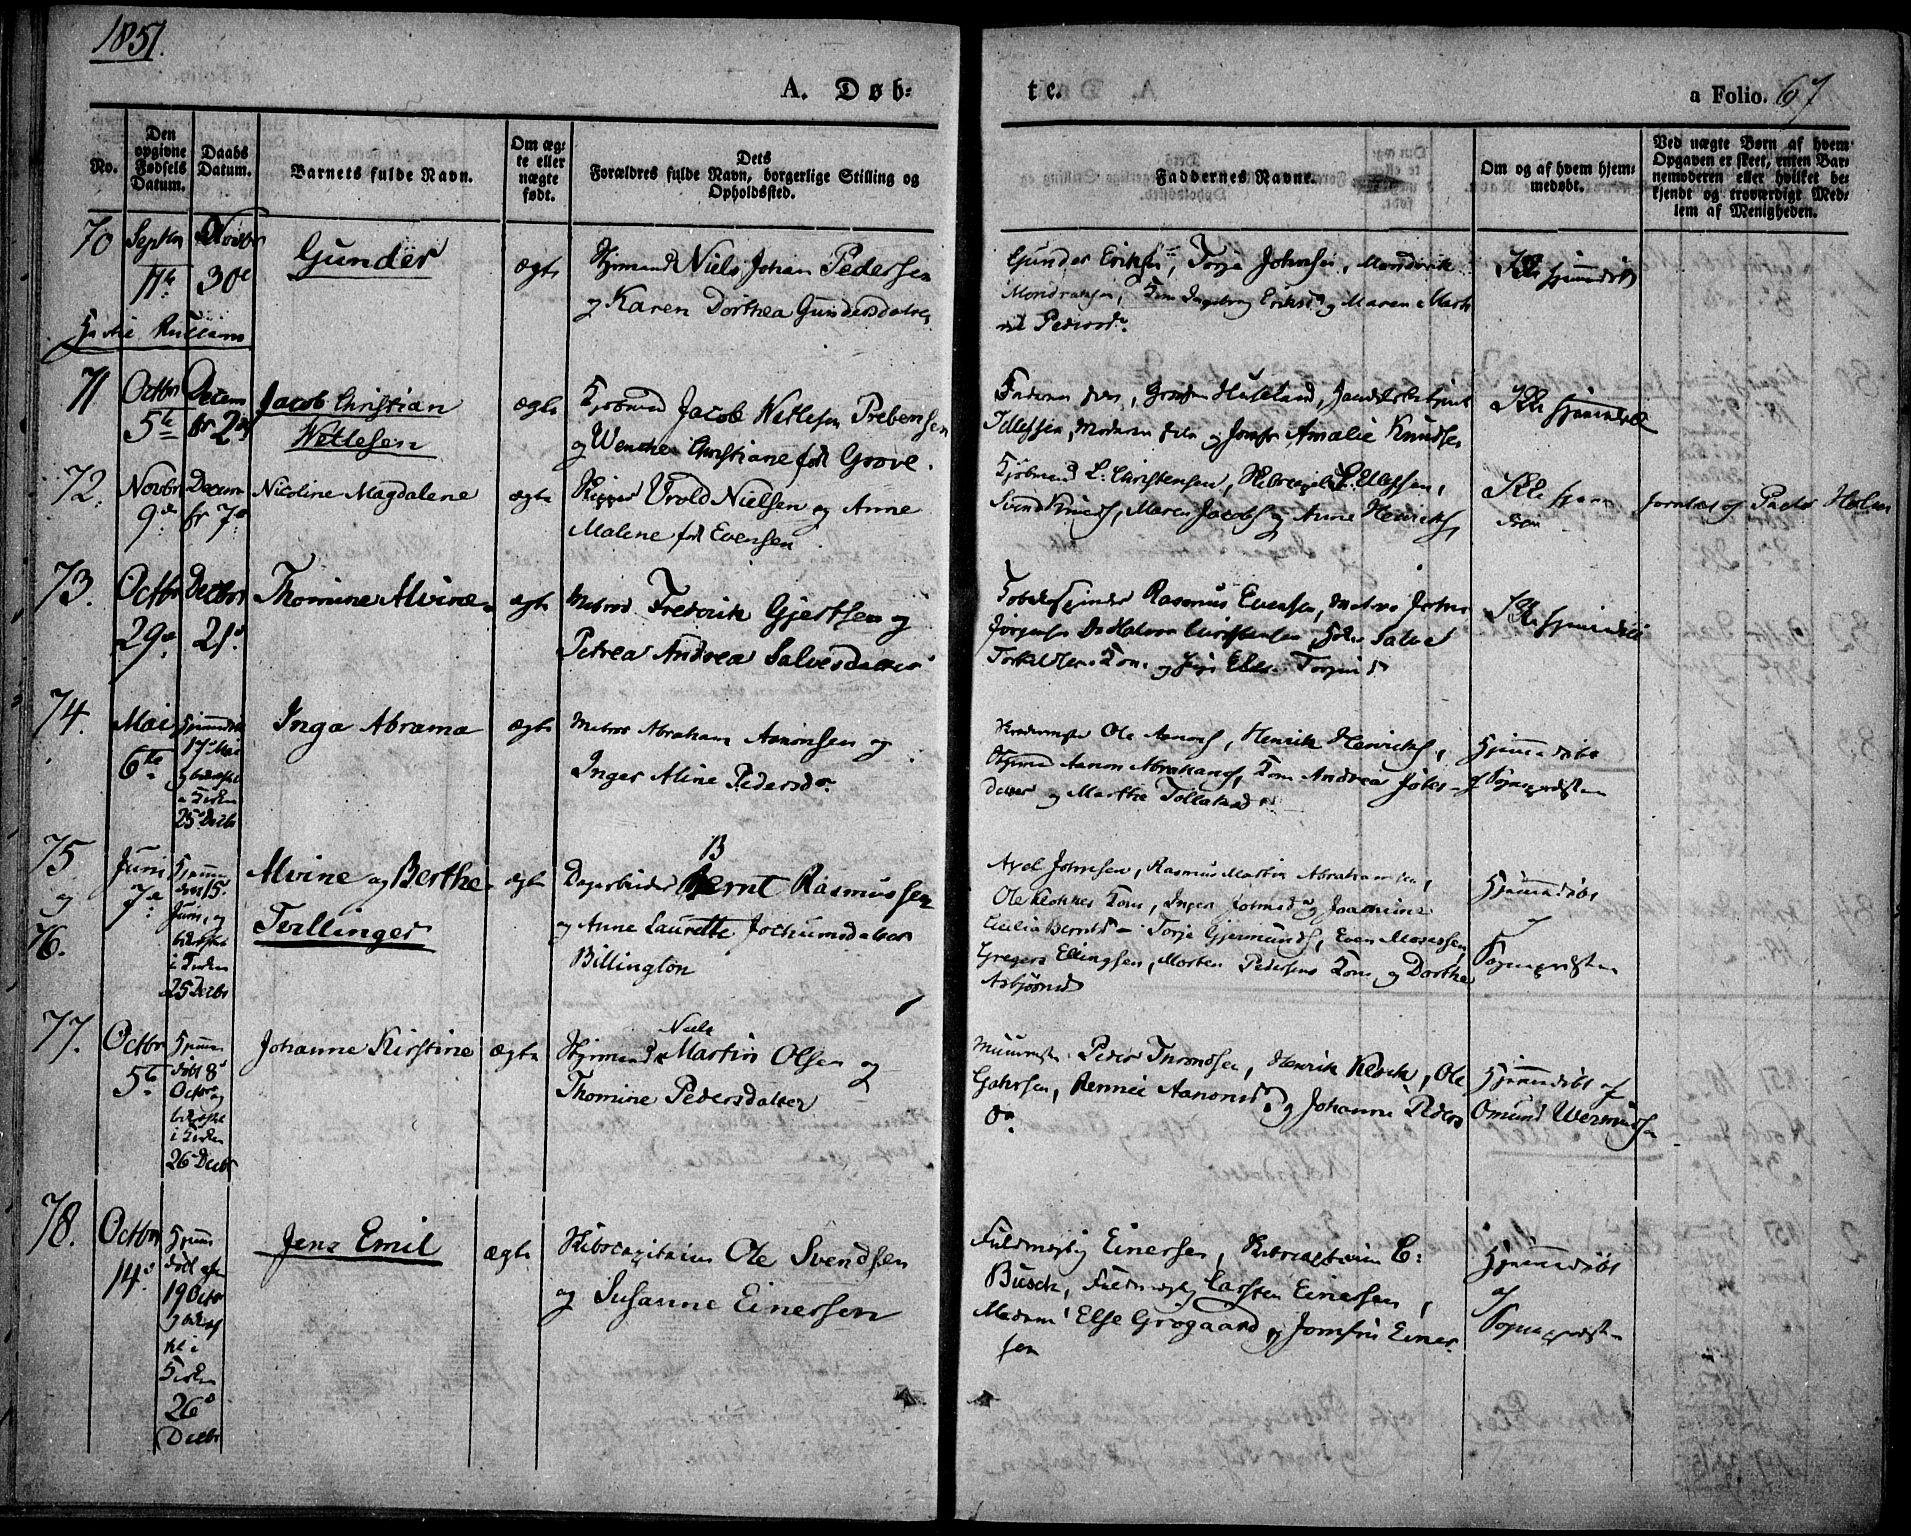 1851.
A. Døb-
te.
a Folio. 67
No.
Den opgivne Fødsels Datum.
Daabs Datum.
Barnets fulde Navn.
Om æg-
te eller
nægte
født.
Dets
Forældres fulde Navn, borgerlige Stilling og
Opholdssted.
Faddernes Navne.
Om og af hvem hjem-
medøbt.
Ved nægte Børn af hvem
Opgaven er skeet, enten Bar-
nemoderen eller hvilket be-
kjendt og troværdigt Med-
lem af Menigheden.
70
Septbr
11te
Novbr
30e
Gunder
ægte
Styrmand Niels Johan Pedersen
og Karen Dorthea Gundersdatter
Gunder Eriksen, Torje Johnsen,
Ingeborg Eriksd og Maren
Pedersdr.
Ikke hjemmedøbt
71
Octbr
5te
Decem
br 2den
Jacob Christian
Wetlesen
ægte
Kjøbmd Jacob Wetlesen Prebensen
og Wenche Christiane født Grove.
Faderen selv, Huseland,
Tellefsen, Moderen selv og Jomfr Amalie Knudsen
Ikke hjemmedøbt
72.
Novbr
9de
Decem
br 7de
Nicoline Magdalene
ægte
Skipper Urold Nielsen og Anne
Malene født Evensen
Kjøbmand L. Christensen, Ellefsen,
Svend Knuds, Maren Jacobs og Anne Henriks,
Ikke hjem
Pastor Holm
73.
Octbr
29de
Decbr
21de
Thomine Alvine
ægte
Matros Frederik Gjertsen og
Petrea Andrea Salvesdatter
Rasmus Evensen, Matros
Jørgensen Do Halvor Christensen
og
Ikke hjemmedøbt
74.
Mai
6te
Hjemmedøbt
17de Mai
og bekræftet
i Kirken
25 Decbr
Inga Abrama
ægte
Matros Abraham Aanonsen og
Inger Aline Pedersdr.
Ole Aanons, Henrik Henriks,
Aanon Abrahams, Kone Andrea
datter og Marthe
Hjemmedøbt
af Sognepresten
75
og
76.
Juni
7de
Hjemme
døbt 15
Juni, og
bekræftet
i Kirken
25 Decbr
Alvine og Berthe
Tvillinger
ægte
Dagarbeider Bernt Rasmussen
B
og Anne Laurette Jochumsdatter
Billington
Axel Johnsen, Rasmus Martin Abrahamsen,
Ole Kone, Inger og Joachime
Cecilia Berntsd – Torje Gjermunds, Even Mosessen,
Gregers Ellingsen, Morten Pedersens Kone, og Dorthe
Asbjørnsd
Hjemmedøbt
af
Sognepresten
77.
Octbr
5te
Hjemme
døbt 8de
Octbr og
bekræftet
i Kirken
26 Decbr
Johanne Kirstine
ægte
Niels
Styrmand Martin Olsen og
Thomine Pedersdatter
Peder Throndsen, Henrik Klevik, Ole
Rennie Aanonsd. og Johanne Peders
dr.
Hjemmedøbt af
Omund Wermundsen
78.
Octbr
14de
Hjemme
døbt af
19 Octbr
og bekræf
tet i
Kirken
26de
Decbr
Jens Emil
ægte
Skibscapitain Ole Svendsen
og Susanne Einersen
Fuldmegtig Einersen, Skibscaptain C:
Busch, Fuldmegtig Carsten Einersen,
Madam Else Grøgaard og Jomfru Einer
sen
Hjemmedøbt
af
Sognepresten